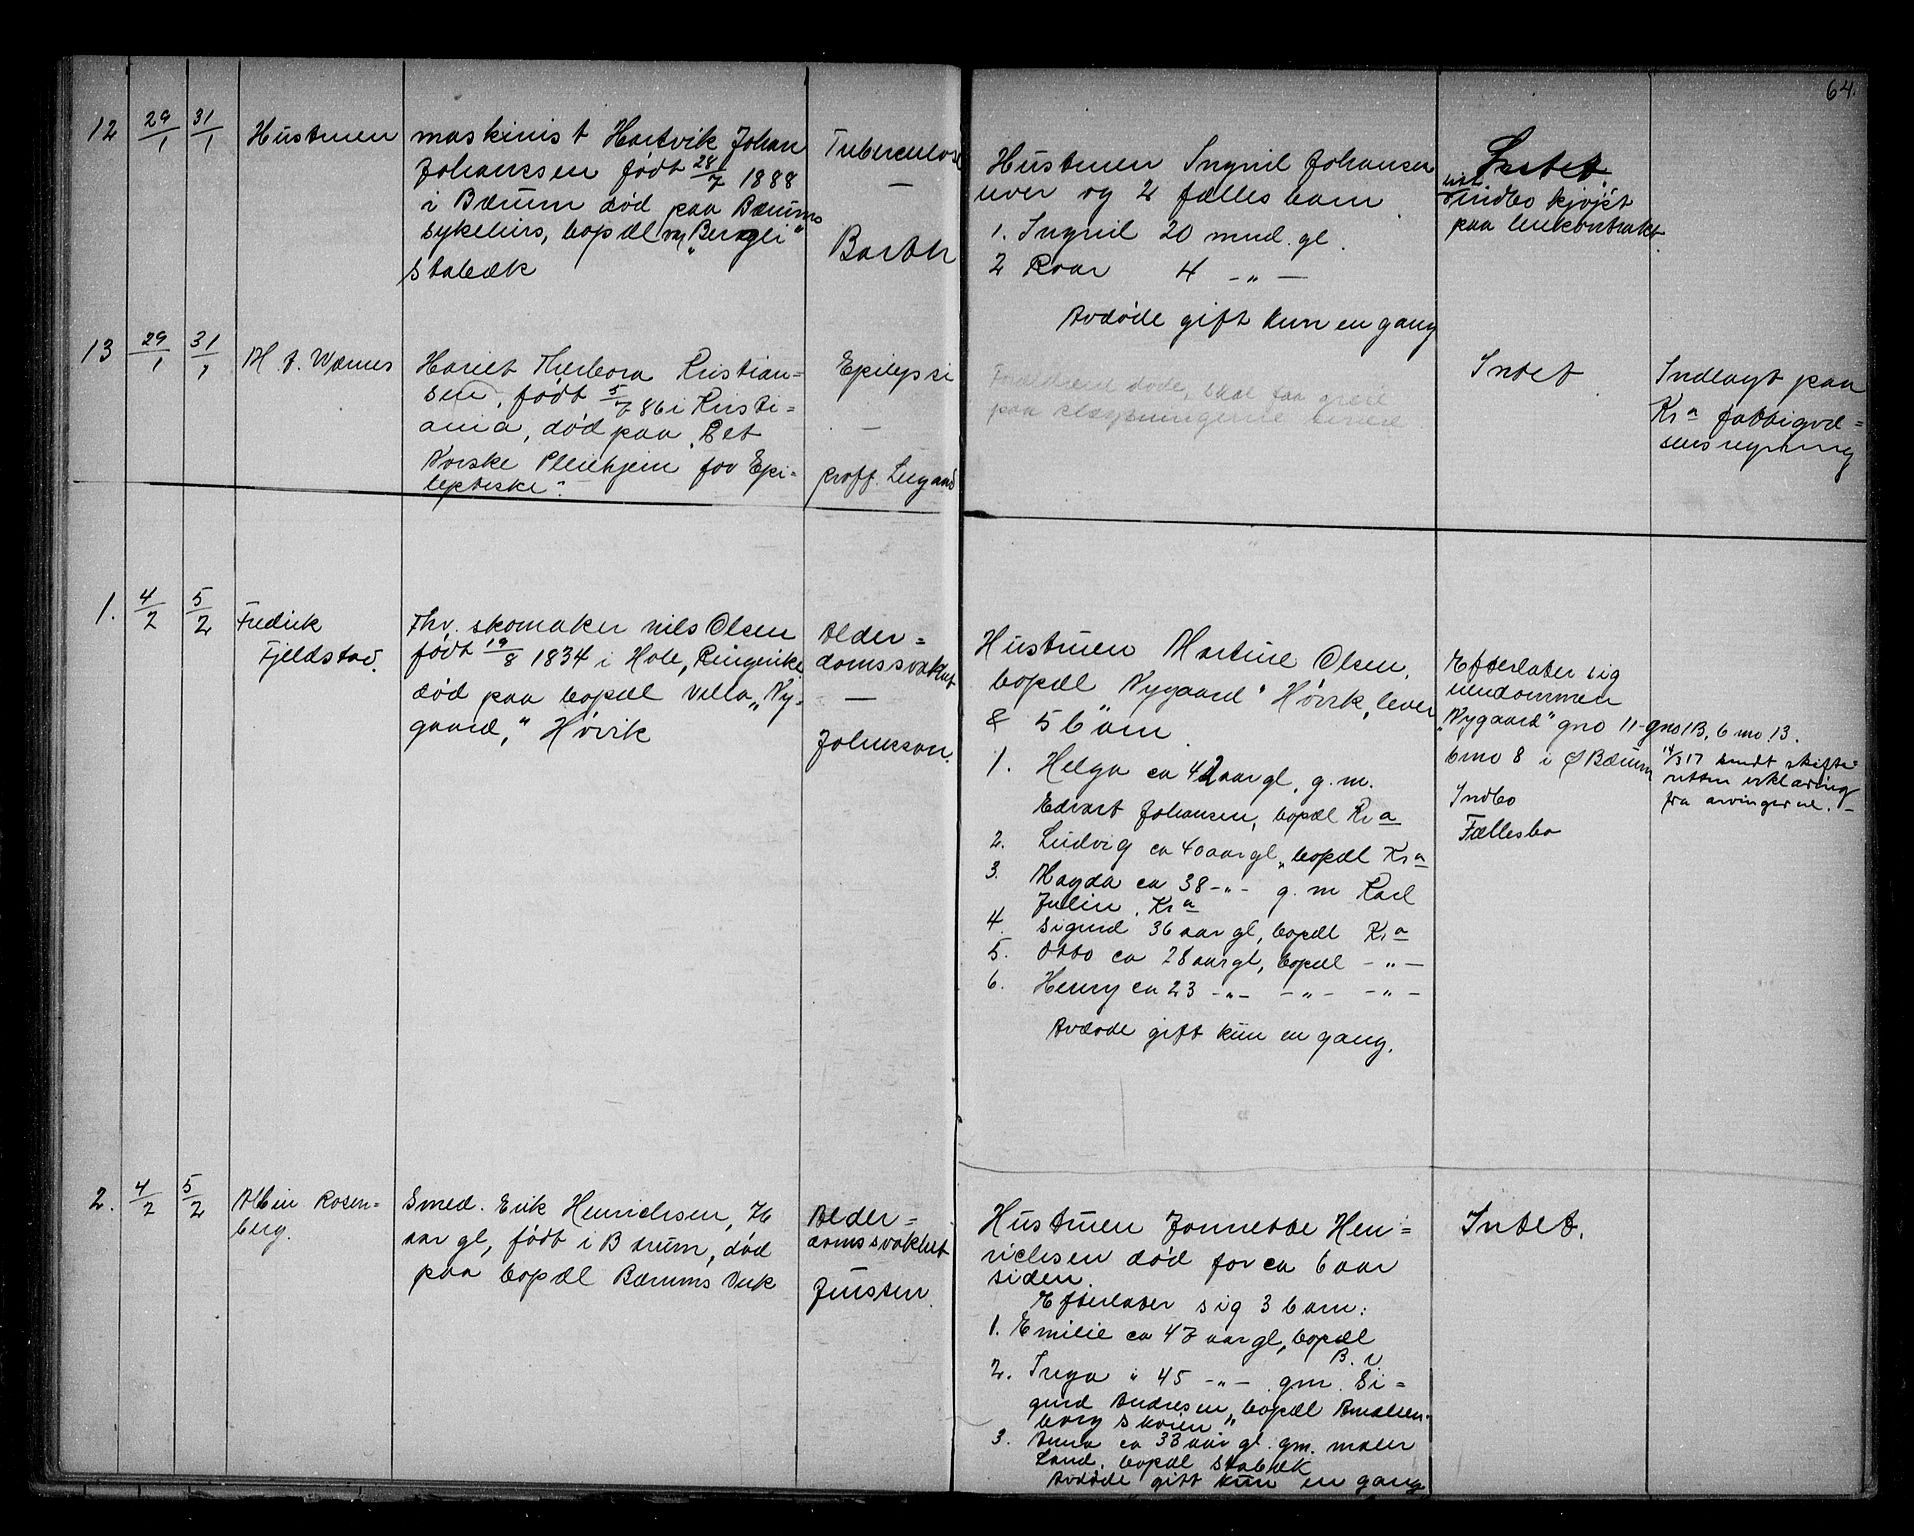 64.
12 29/1 31/1 Hustruen maskinist Hartvik Johan
Johanssen født 28/7 1888
i Bærum død paa Bærums
sykehus, bopæl „Bergli“
Stabæk
Tuberculose
—
Barth
Hustruen Ingrid Johansen
lever og 2 fælles barn
1. Ingrid 20 mnd. gl.
2 Roar 4 -„-
Avdøde gift kun en gang
Intet
lit indbo kjøpt
paa leiekontrakt
13 29/1 31/1 M. A. Wærnes
Hariet Therbora Kristian=
sen, født 5/7 86 i Kristi=
ania, død paa „Det
Norske Pleiehjem for Epi=
leptiske“.
Epilepsi
—
Proff. Leegaard
Forældrene døde, skal faa greie
paa
Intet
Indlagt paa
Kr a fattigvæ=
sens regning
1. 4/2 5/2 Fredrik
Fjeldstad.
Fhv. skomaker Nils Olsen
født 19/8 1834 i Hole, Ringerike
død paa bopæl Villa „Ny-
gaard,“ Høvik
Alder=
domssvakhet
—
Johnsson.
Hustruen Martine Olsen,
bopæl „Nygaard“ Høvik, lever
& 5 barn
1. Helga ca 42 aar gl, g. m.
Edvart Johansen, bopæl Kr a
2. Ludvig ca 40 aar gl, bopæl Kr a
3. Magda ca 38 -„- g. m Karl
Julin, Kr a
4. Sigurd 36 aar gl, bopæl Kr a
5. Otto ca 28 aar gl, bopæl -„-
6. Henry ca 23 -„- -„- -„-
Avdøde gift kun en gang.
Efterlater sig
eiendommen
„Nygaard“ gno 11-gno 1B, bno 13.
bno 8 i Ø Bærum
Indbo
Fællesbo
14/3 17 sendt skifte-
retten erklæring
fra arvingerne. —
2. 4/2 5/2 Albin Rosen-
berg.
Smed. Erik Henrichsen, 76
aar gl, født i Bærum, død
paa bopæl Bærums Verk
Alder=
domssvakhet
Juusten.
Hustruen Jonnette Hen=
richsen død for ca 6 aar
siden.
Efterlater sig 3 barn:
1. Emilie ca 47 aar gl, bopæl
B. V.
2. Inga „ 45 -„- gm. Si=
gurd Andresen, bopæl Amalien-
borg Skøien“
3. Anna ca 33 aar gl. gm. maler
Lund, bopæl Stabæk
Avdøde gift kun en gang
Intet.